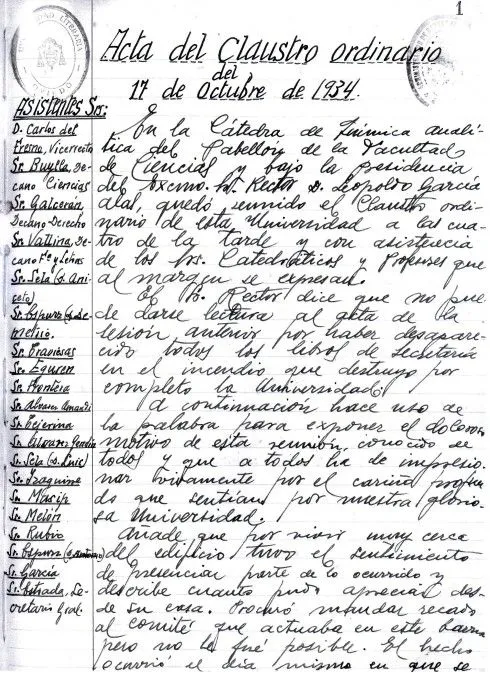 1
UNIVERSIDAD LITERARIA
OVIEDO
Acta del Claustro ordinario
del
17 de Octubre de 1934.
Asistentes Srs:
D. Carlos del
Fresno, Vicerrector
Sr. Buylla, De-
cano Ciencias
Sr. Galcerán
Decano Derecho
Sr. Vallina, De-
cano Fª y Letras
Sr. Sela (D. Ani-
ceto)
Sr. Espurz (D. De-
metrio.
Sr. Traviesas
Sr. Eguren
Sr. Frontera
Sr. Alvarez Amandi
Sr. Ceierina
Sr. Alvarez Gendin
Sr. Sela (D. Luis)
Sr. Izaguirre
Sr. Masip
Sr. Melón
Sr. Rubio
Sr. Espurz (D. Antonio)
Sr. García
Sr. Estrada, Se-
cretario Gral.
En la Cátedra de Química analí-
tica del Pabellon de la Facultad
de Ciencias y bajo la presidencia
del Excmo. Sr. Rector D. Leopoldo García
Alas, quedó reunido el Claustro ordi-
nario de esta Universidad a las cua-
tro de la tarde y con asistencia
de los Srs. Catedráticos y Profesores que
al margen se expresan.
El Sr. Rector dice que no pue-
de darse lectura al acta de la
sesión anterior por haber desapare-
cido todos los libros de Secretaría
en el incendio que destruyó por
completo la Universidad.
A continuación hace uso de
la palabra para exponer el doloroso
motivo de esta reunión, conocido de
todos y que a todos ha de impresio-
nar vivamente por el cariño profun-
do que sentian por nuestra glorio-
sa Universidad.
Añade que por vivir muy cerca
del edificio tuvo el sentimiento
de presenciar parte de lo ocurrido y
describe cuanto pudo apreciar des-
de su casa. Procuró mandar recado
al comité que actuaba en este barrio
pero no le fué posible. El hecho
ocurrió el dia mismo en que se